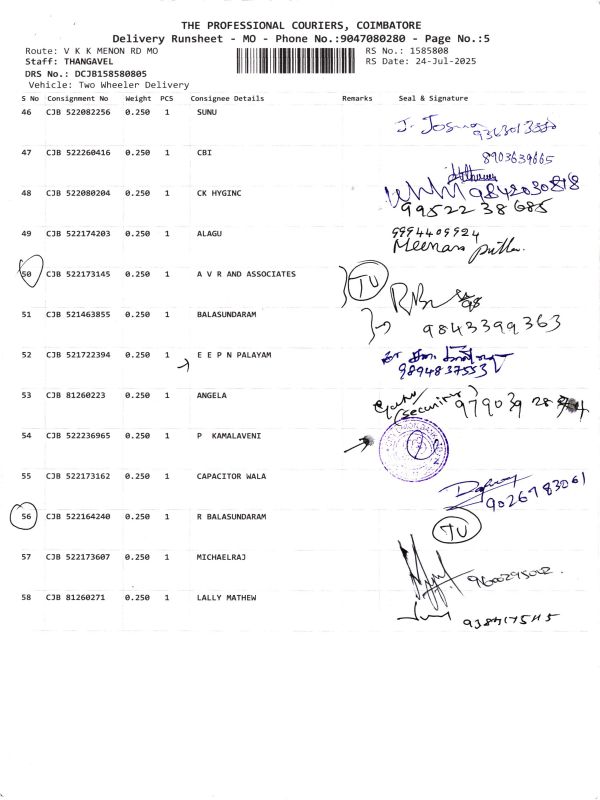 THE PROFESSIONAL COURIERS, COIMBATORE
Delivery Runsheet - MO - Phone No.:9047080280 - Page No.:5
Route: V K K MENON RD MO RS No.: 1585808
Staff: THANGAVEL RS Date: 24-Jul-2025
DRS No.: DCJB158580805
Vehicle: Two Wheeler Delivery
S No Consignment No Weight PCS Consignee Details Remarks Seal & Signature
46 CJB 522082256 0.250 1 SUNU
J. Josua
47 CJB 522260416 0.250 1 CBI 8903639665
48 CJB 522080204 0.250 1 CK HYGINC 9842030818
99522 38685
49 CJB 522174203 0.250 1 ALAGU 9994409924
Meenara
50 CJB 522173145 0.250 1 A V R AND ASSOCIATES TU
51 CJB 521463855 0.250 1 BALASUNDARAM
9843399363
52 CJB 521722394 0.250 1 E E P N PALAYAM
9894837553
53 CJB 81260223 0.250 1 ANGELA
(security) 979039 28
54 CJB 522236965 0.250 1 P KAMALAVENI
55 CJB 522173162 0.250 1 CAPACITOR WALA
9026783061
56 CJB 522164240 0.250 1 R BALASUNDARAM TU
57 CJB 522173607 0.250 1 MICHAELRAJ
58 CJB 81260271 0.250 1 LALLY MATHEW